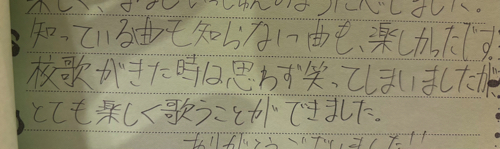 楽しく、
知っている曲も知らない曲も、楽しかったです。
校歌がきた時は思わず笑ってしまいましたが
とても楽しく歌うことができました。
ありがとうございました!!